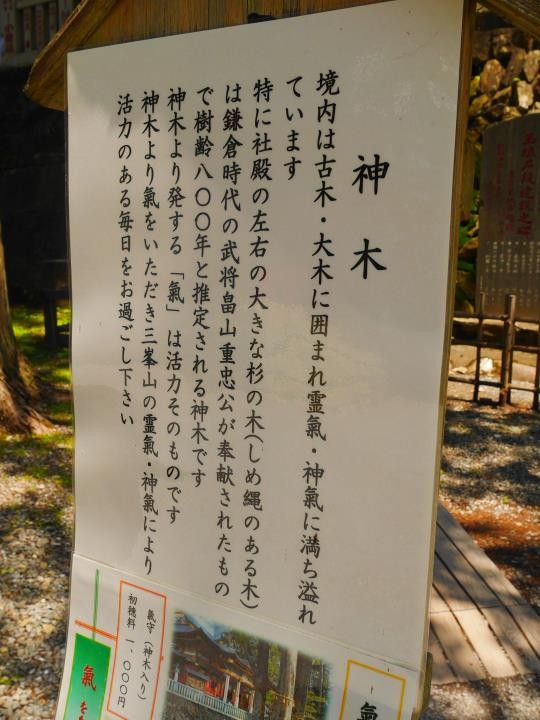 神木
境内は古木・大木に囲まれ霊氣・神氣に満ち溢れ
ています
特に社殿の左右の大きな杉の木(しめ縄のある木)
は鎌倉時代の武将畠山重忠公が奉献されたもの
で樹齢八〇〇年と推定される神木です
神木より発する「氣」は活力そのものです
神木より氣をいただき三峯山の霊氣・神氣により
活力のある毎日をお過ごし下さい
氣守(神木入り)
初穂料 一、〇〇〇円
氣
氣